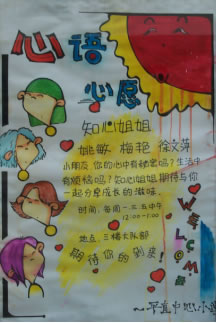 心语
心愿
知心姐姐
姚敏 梅艳 徐文萍
小朋友 你的心中有秘密吗?生活中
有烦恼吗?知心姐姐期待与你
一起分享成长的滋味.
时间:每周一.三.五中午
12:00-1:00
地点:三楼大队部
期待你的到来!
WELCOME